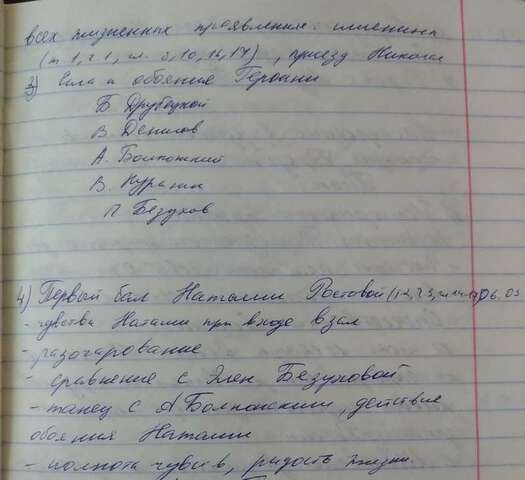 всех жизненных проявления: именины
(т 1, ч 1, гл. 8, 10, 16, 17), приезд Николая
3) Сила и обояния Героини
Б Друбецкой
В. Денисов
А. Болконский
В. Курагин
П Безухов
4) Первый бал Наташи Ростовой (т 2, ч 3, 06.03
- чувства Наташи при входе в зал
- разочарование
- сравнение с Элен Безуховой
- танец с А Болконским, действие
обояния Наташи
- полнота чувств, радость жизни